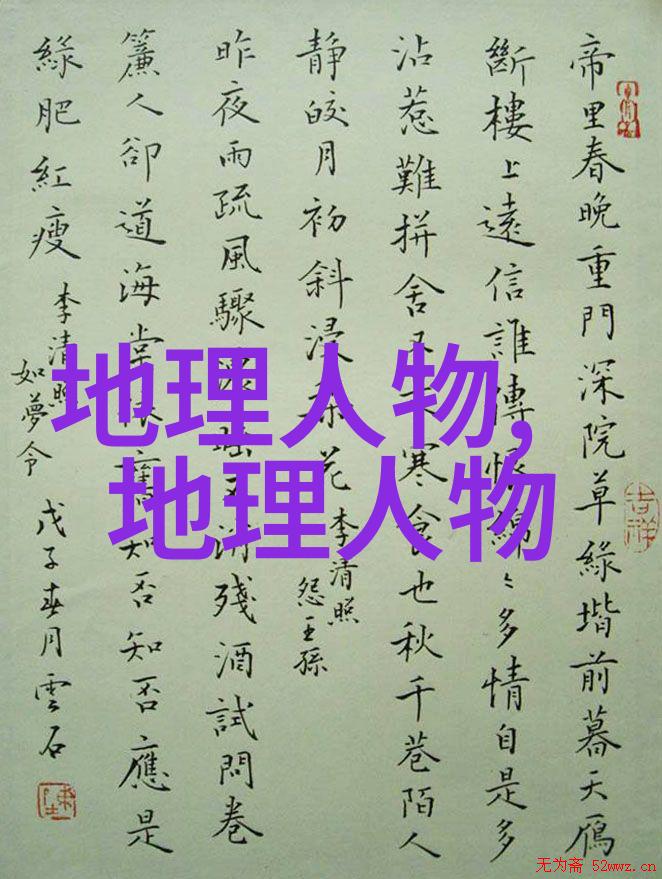 帝里春晚重門深院草緑堦前暮天鴈
斷樓上遠信誰傳恨綿〻多情自是多
沾惹難拼舍又寒食也秋千巷陌人
静皎月初斜浸梨花
李清照
怨王孫
昨夜雨疏風驟濃睡不消殘酒試問卷
簾人卻道海棠依舊知否知否應是
緑肥紅瘦
李清照
如夢令
戊子春月雲石
地理人物,
地理人物
吉祥
无为斋 52wwz.cn